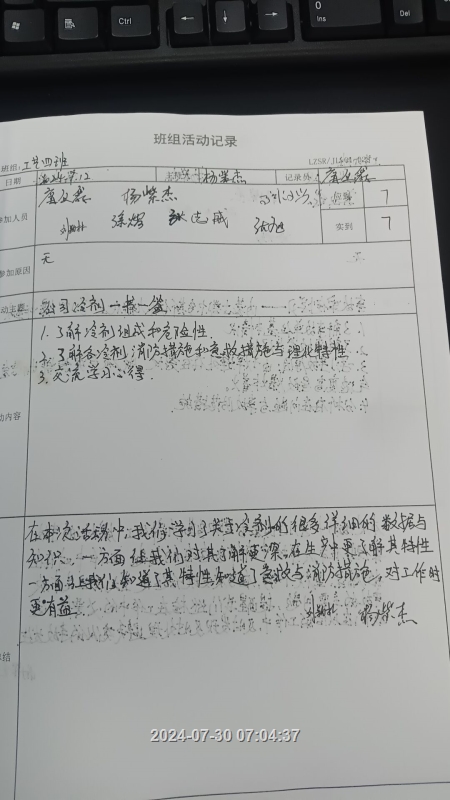 Ctrl
0
Ins
Del
班组活动记录
班组: 工艺四班
日期 主持人 杨紫杰 记录员
参加人员 杨紫杰 应到 7
实到 7
参加原因 无
动主题 公司冷剂一书一签
1. 了解冷剂组成和危险性.
2. 了解各冷剂消防措施和急救措施与理化特性
3. 交流学习心得.
动内容
在本次活动中,我们学习了关于冷剂的很多详细的数据与
知识,一方面使我们对其了解更深,在生产中更了解其特性
一方面让我们知道了其特性知道了急救与消防措施,对工作时
更有益. 杨紫杰
总结
2024-07-30 07:04:37